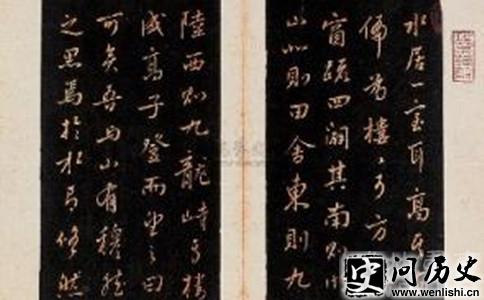 水居一室耳高其
偏為樓樓可方
窗疏四闢其南則湖
山北則田舍東則九
陸西則九龍峙焉樓
成高子登而望之曰
可矣吾於山有穆然
之思焉於水有悠然
史问历史
www.wenlishi.cn